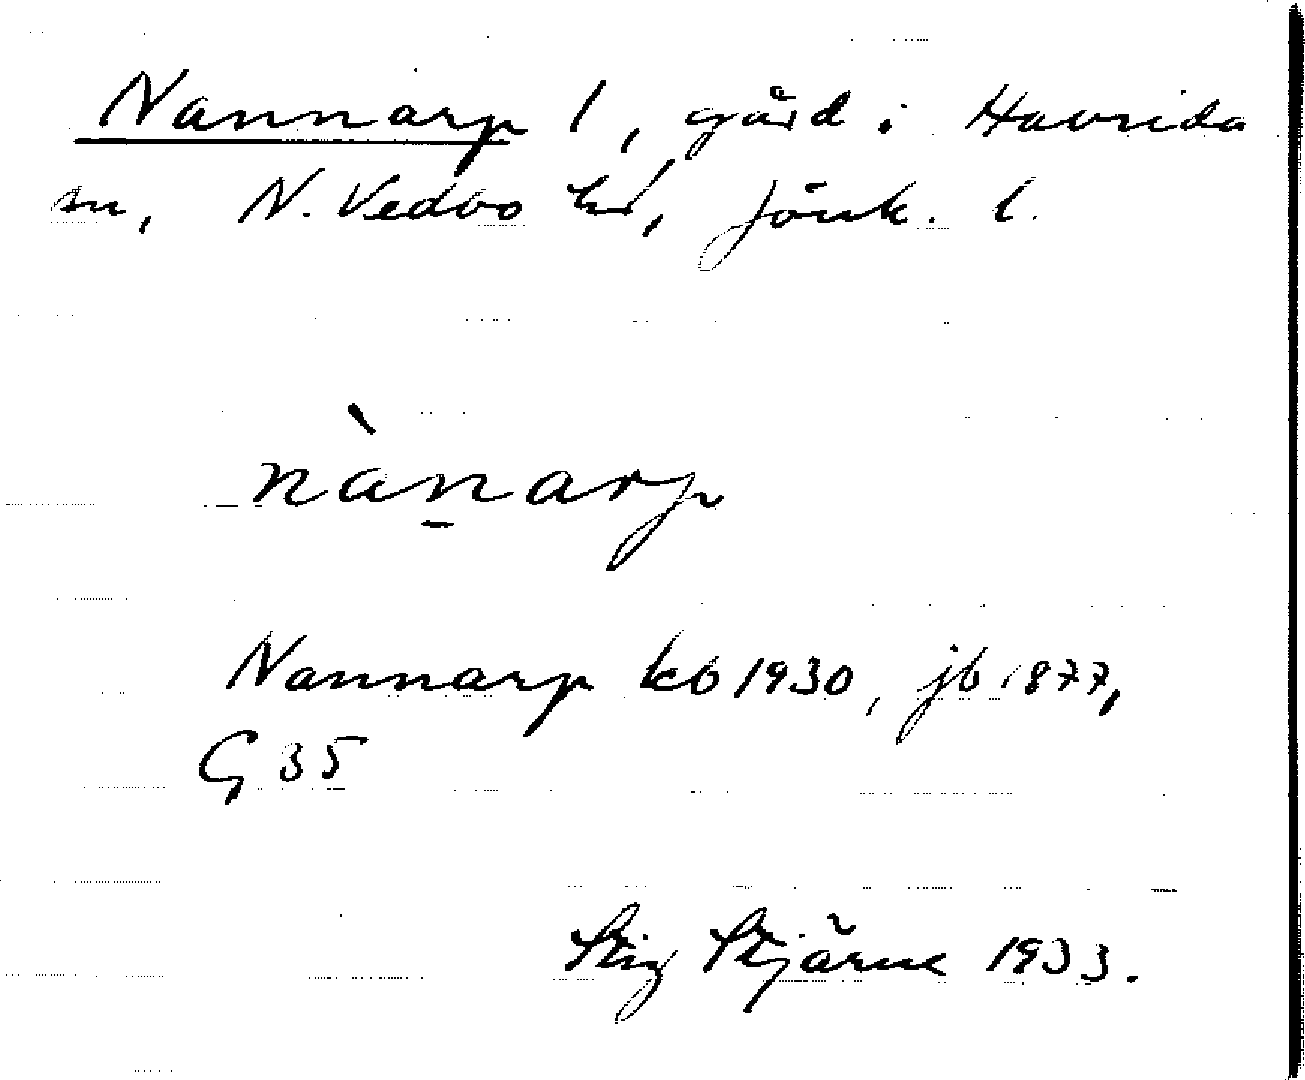 Nannarp 1, gård i Haurida
sn, N. Vedbo hd, Jönk. l.
nàn̲arp
Nannarp kb 1930, jb 1877,
G 35
Stig Stjärne 1933.